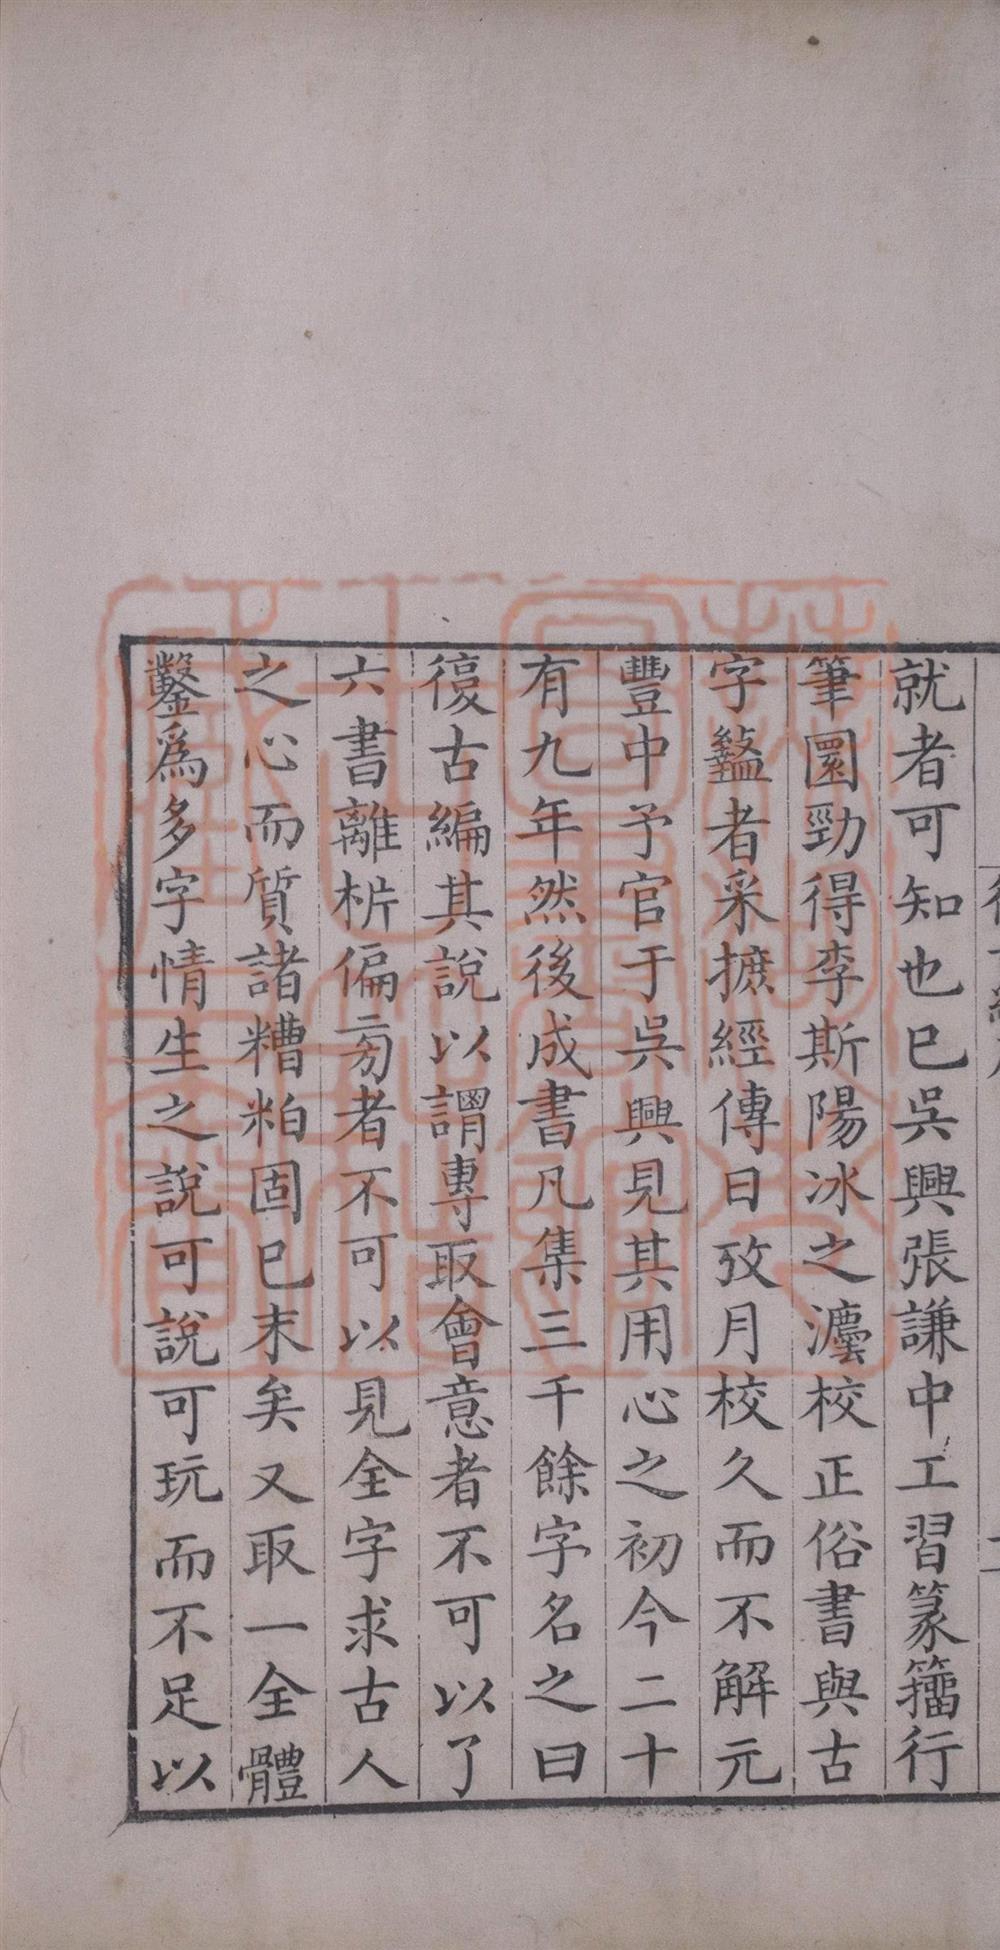 就者可知也已吳興張謙中工習篆籀行
筆圜勁得李斯陽冰之灋校正俗書與古
字盭者采摭經傳日攷月校久而不解元
豐中予官于吳興見其用心之初今二十
有九年然後成書凡集三千餘字名之曰
復古編其說以謂專取會意者不可以了
六書離析偏旁者不可以見全字求古人
之心而質諸糟粕固已末矣又取一全體
鑿爲多字情生之說可說可玩而不足以